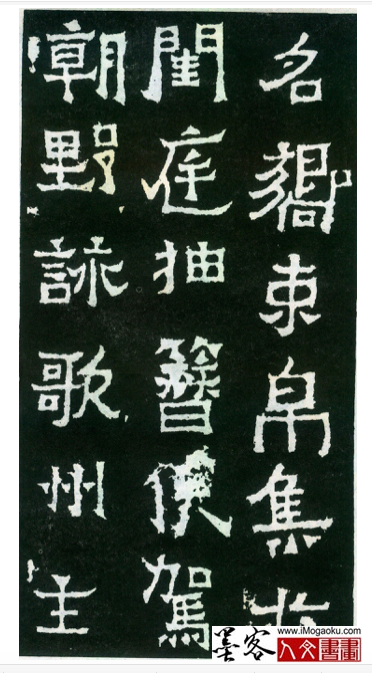 名響束帛集於
閨庭抽簪俟駕
朝野詠歌州主
墨客
www.iMogaoku.com
人文書畫